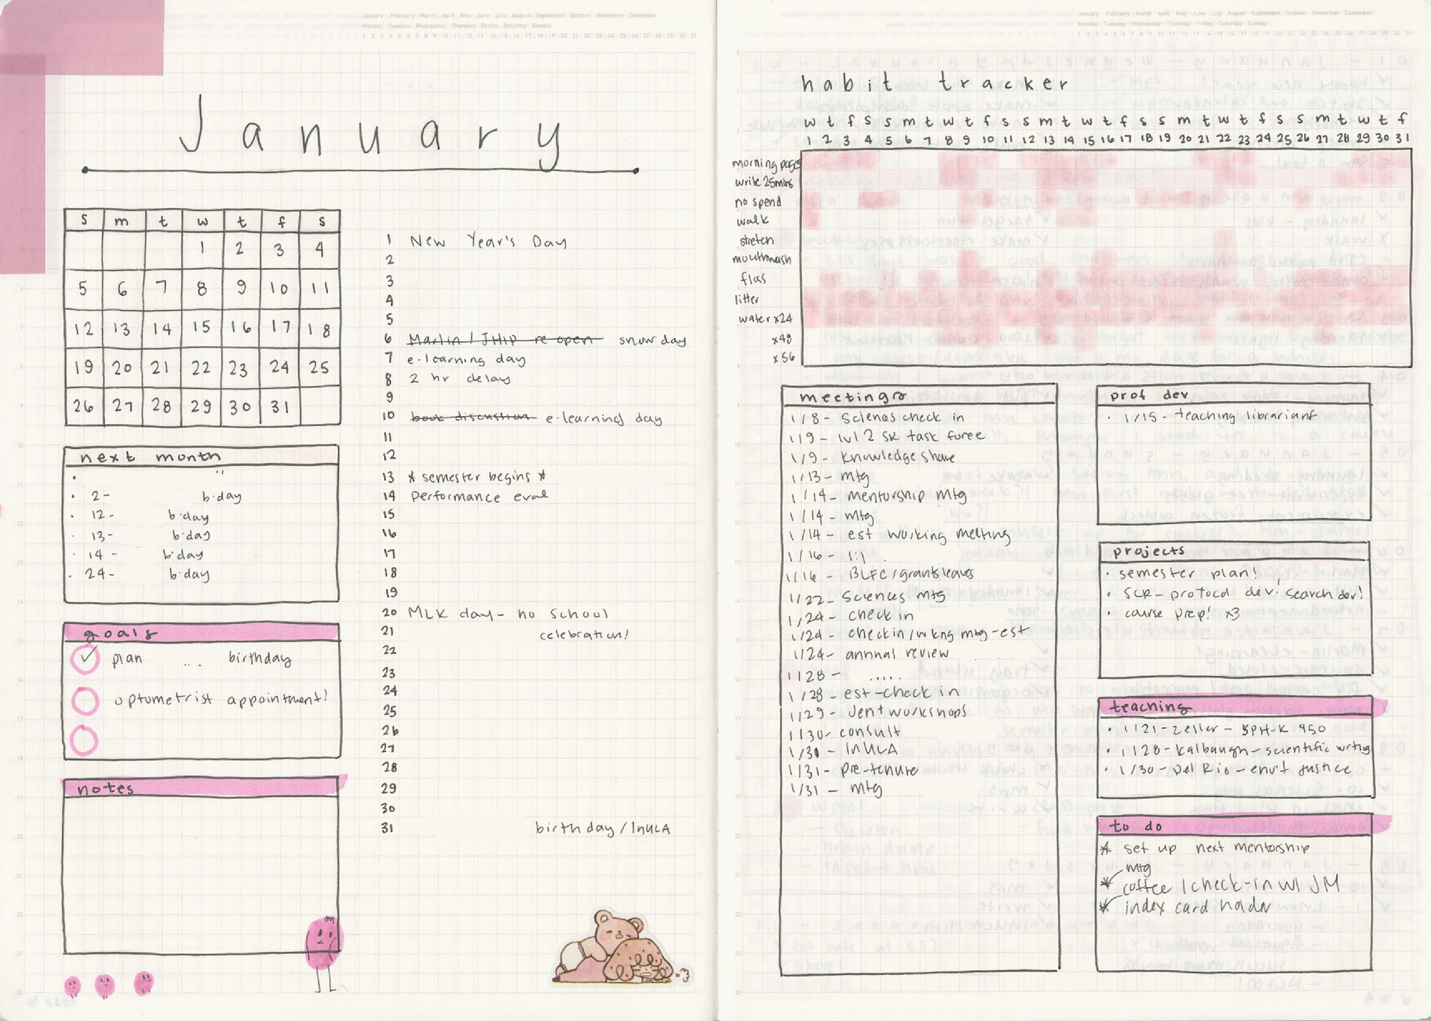 January February March April May June July August September October November December
Monday Tuesday Wednesday Thursday Friday Saturday Sunday
1 2 3 4 5 6 7 8 9 10 11 12 13 14 15 16 17 18 19 20 21 22 23 24 25 26 27 28 29 30 31
January
s m t w t f s
1 2 3 4
5 6 7 8 9 10 11
12 13 14 15 16 17 18
19 20 21 22 23 24 25
26 27 28 29 30 31
next month
2- b·day
12- b·day
13- b·day
14- b·day
24- b·day
goals
plan ... birthday
optometrist appointment!
notes
1 New Year's Day
2
3
4
5
6 Marlin / JHIP re-open snow day
7 e-learning day
8 2 hr delay
9
10 book discussion e-learning day
11
12
13 * semester begins *
14 Performance eval
15
16
17
18
19
20 MLK day- no school
21 celebration!
22
23
24
25
26
27
28
29
30
31 birthday/InULA
January February March April May June July August September October November December
Monday Tuesday Wednesday Thursday Friday Saturday Sunday
1 2 3 4 5 6 7 8 9 10 11 12 13 14 15 16 17 18 19 20 21 22 23 24 25 26 27 28 29 30 31
habit tracker
w t f s s m t w t f s s m t w t f s s m t w t f s s m t w t f
1 2 3 4 5 6 7 8 9 10 11 12 13 14 15 16 17 18 19 20 21 22 23 24 25 26 27 28 29 30 31
morning pages
write 25mins
no spend
walk
stretch
mouthwash
floss
litter
water x24
x48
x56
meetings
1/8- Sciences check in
1/9- lvl 2 SR task force
1/9- Knowledge share
1/13- mtg
1/14- mentorship mtg
1/14- mtg
1/14- est working meeting
1/16- 1:1
1/16- BLFC/grants leaves
1/22- Sciences mtg
1/24- check in
1/24- checkin/wkng mtg-est
1/24- annual review
1/28- .....
1/28- est-check in
1/29- dent workshops
1/30- consult
1/30- InULA
1/31- pre-tenure
1/31- mtg
prof dev
· 1/15- teaching librarians
projects
· semester plan!
· SCR- protocol dev, search dev!
· course prep! x3
teaching
· 1/21- Zeller- SPH-K 450
· 1/28- Kalbaugh- scientific wrtng
· 1/30- Del Rio- env't justice
to do
* set up next mentorship
mtg
* coffee/check-in w/ JM
* index card holder